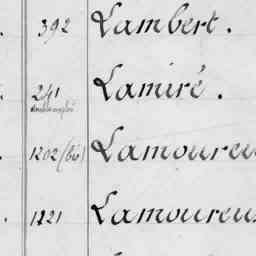 392 Lambert.
241 Lamiré.
1202 (bis) Lamoureu
1221 Lamoureu